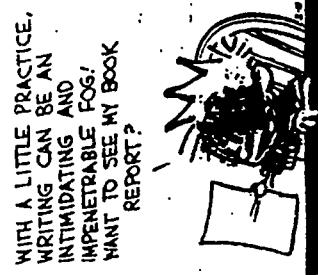 WITH A LITTLE PRACTICE,
WRITING CAN BE AN
INTIMIDATING AND
IMPENETRABLE FOG!
WANT TO SEE MY BOOK
REPORT?